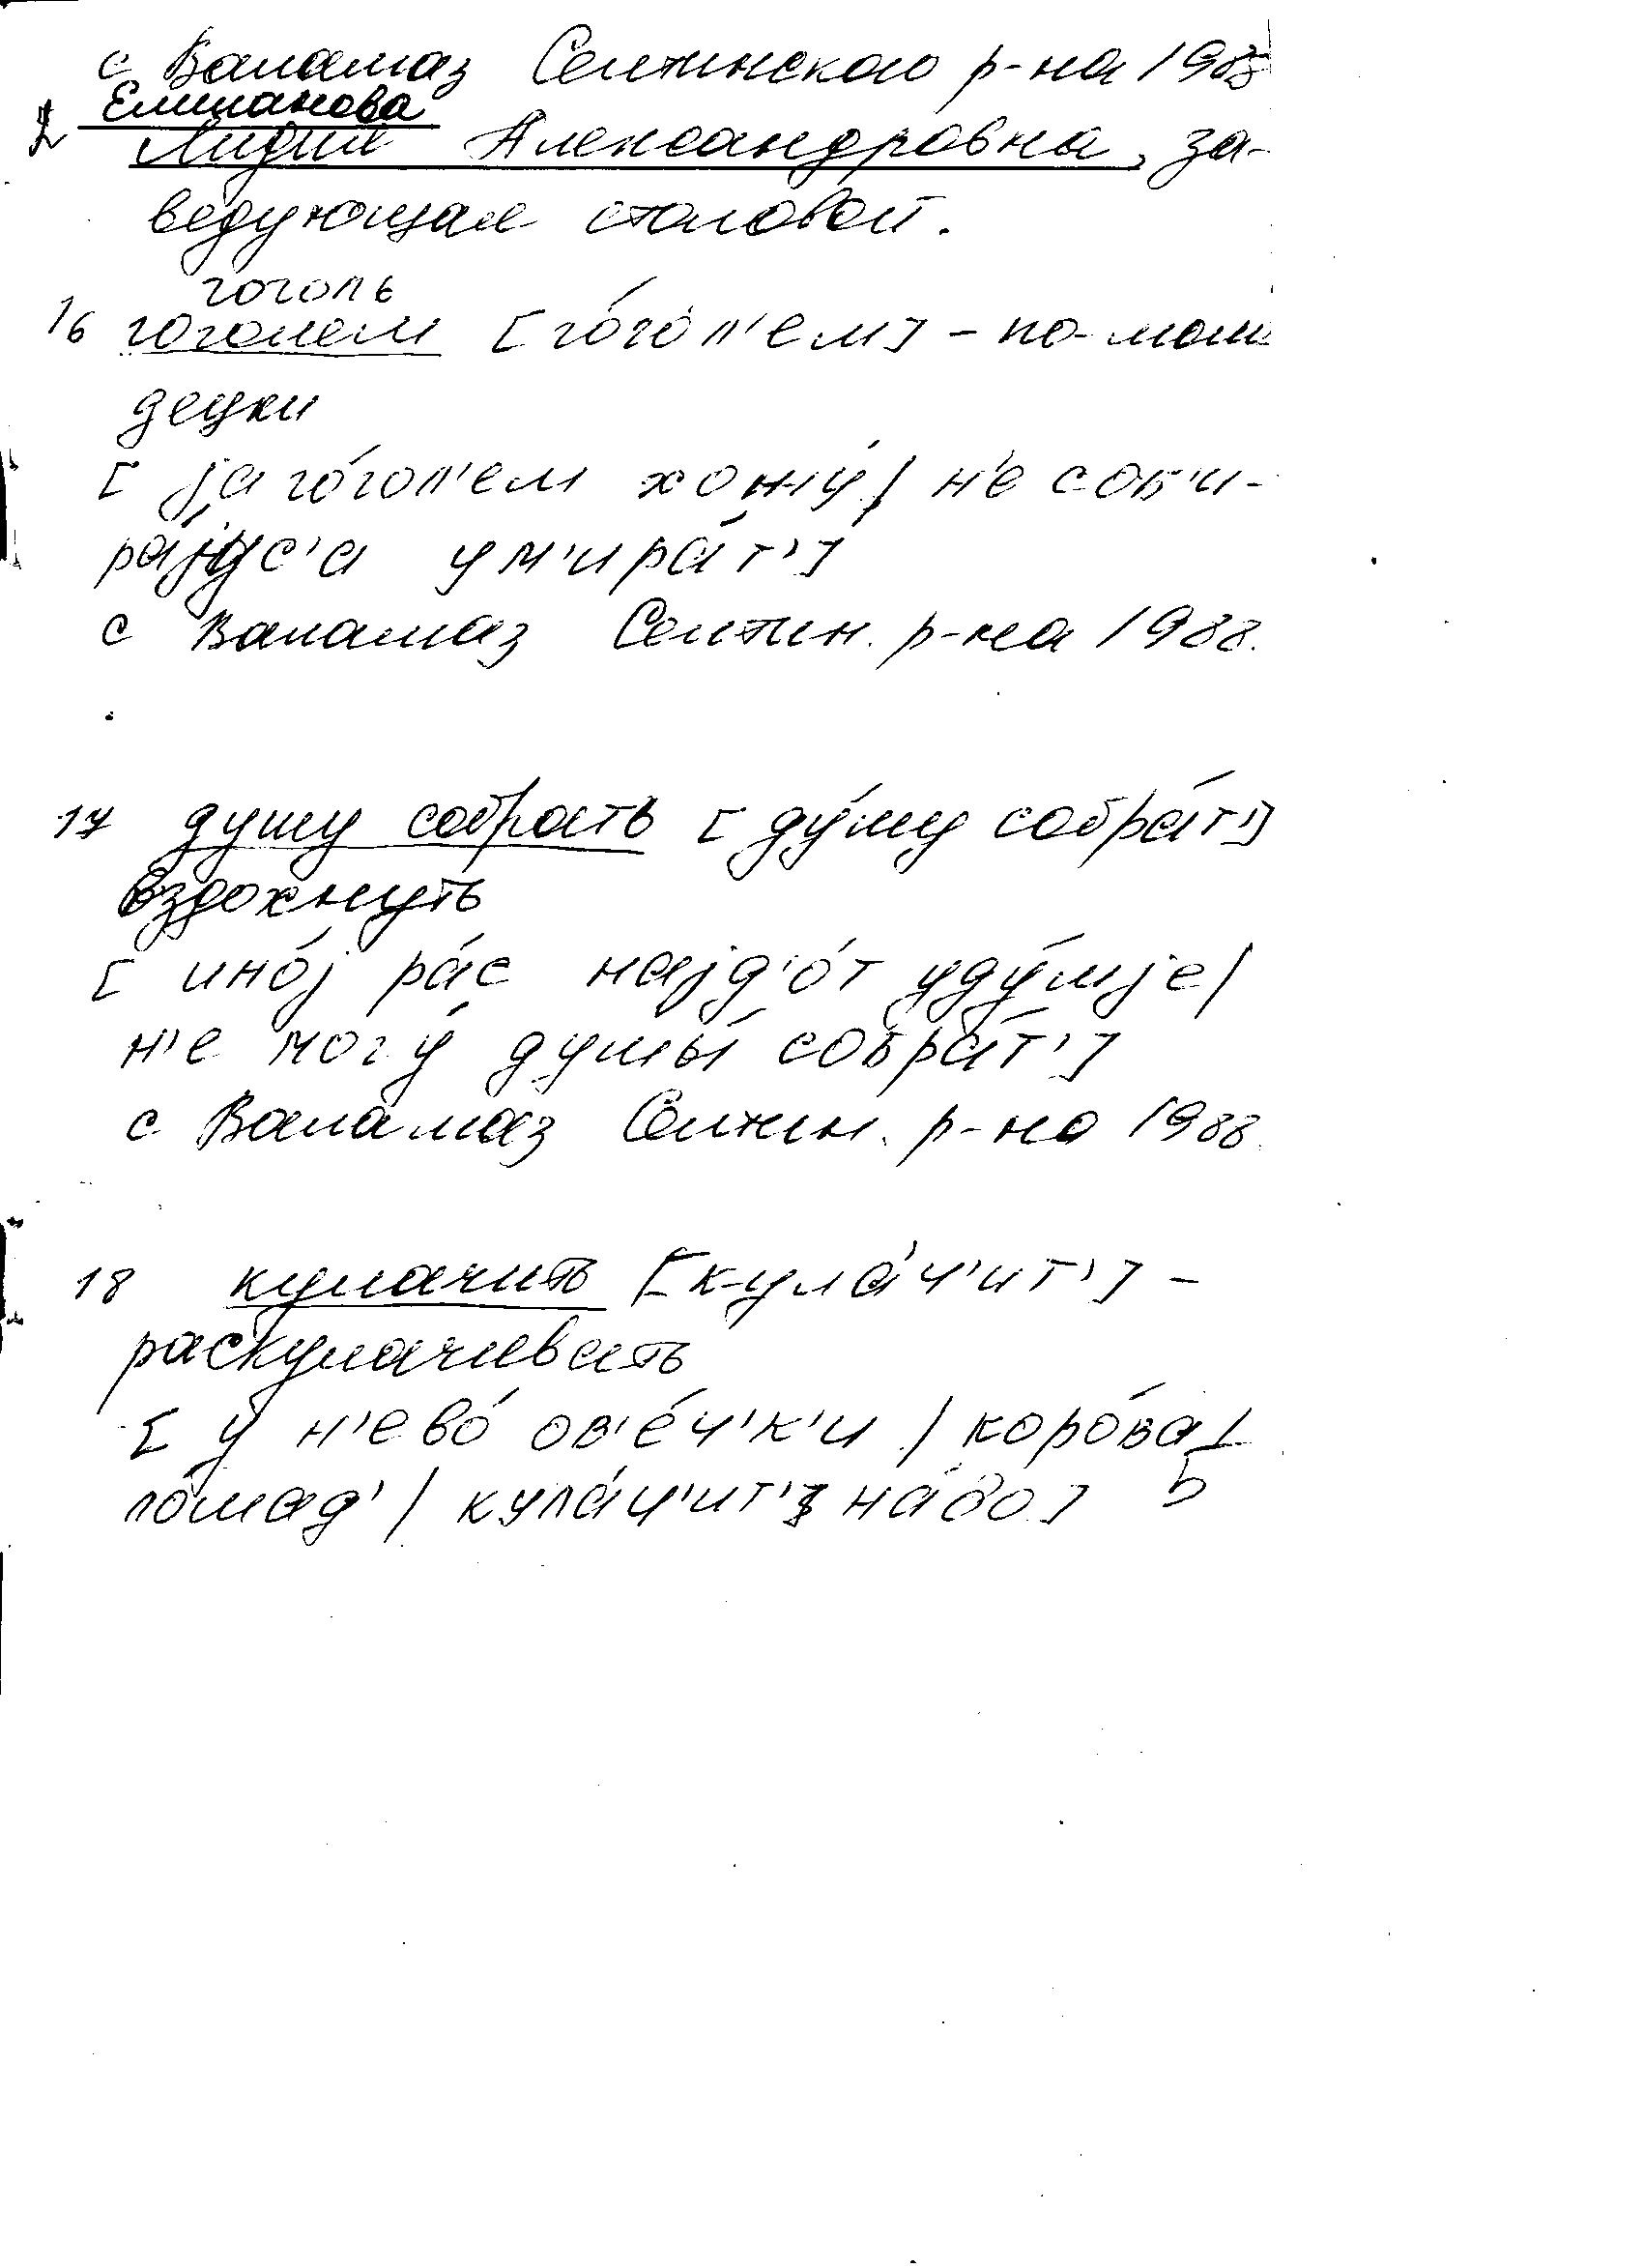 с Валамаз Селтинского р-на 1988
Епишанова
Лидия Александровна, за-
ведующая столовой.
гоголь
16 гоголем [го́гол'ем] - по-моло
децки
[ jа го́гол'ем хожу́ / н'е соб'и-
ра́jус'а ум'ира́т']
с Валамаз Селтин. р-на 1988.
17 душу собрать [ду́шу собра́т']
вздохнуть
[ ино́j ра́с наjд'о́т уду́шjе /
н'е могу́ душы́ собра́т']
с Валамаз Селтин. р-на 1988.
18 кулачить [кула́ч'ит'] -
раскулачивать
[ у н'ево́ ов'е́ч'к'и / коро́ва /
ло́шад' / кула́ч'ит' на́до]